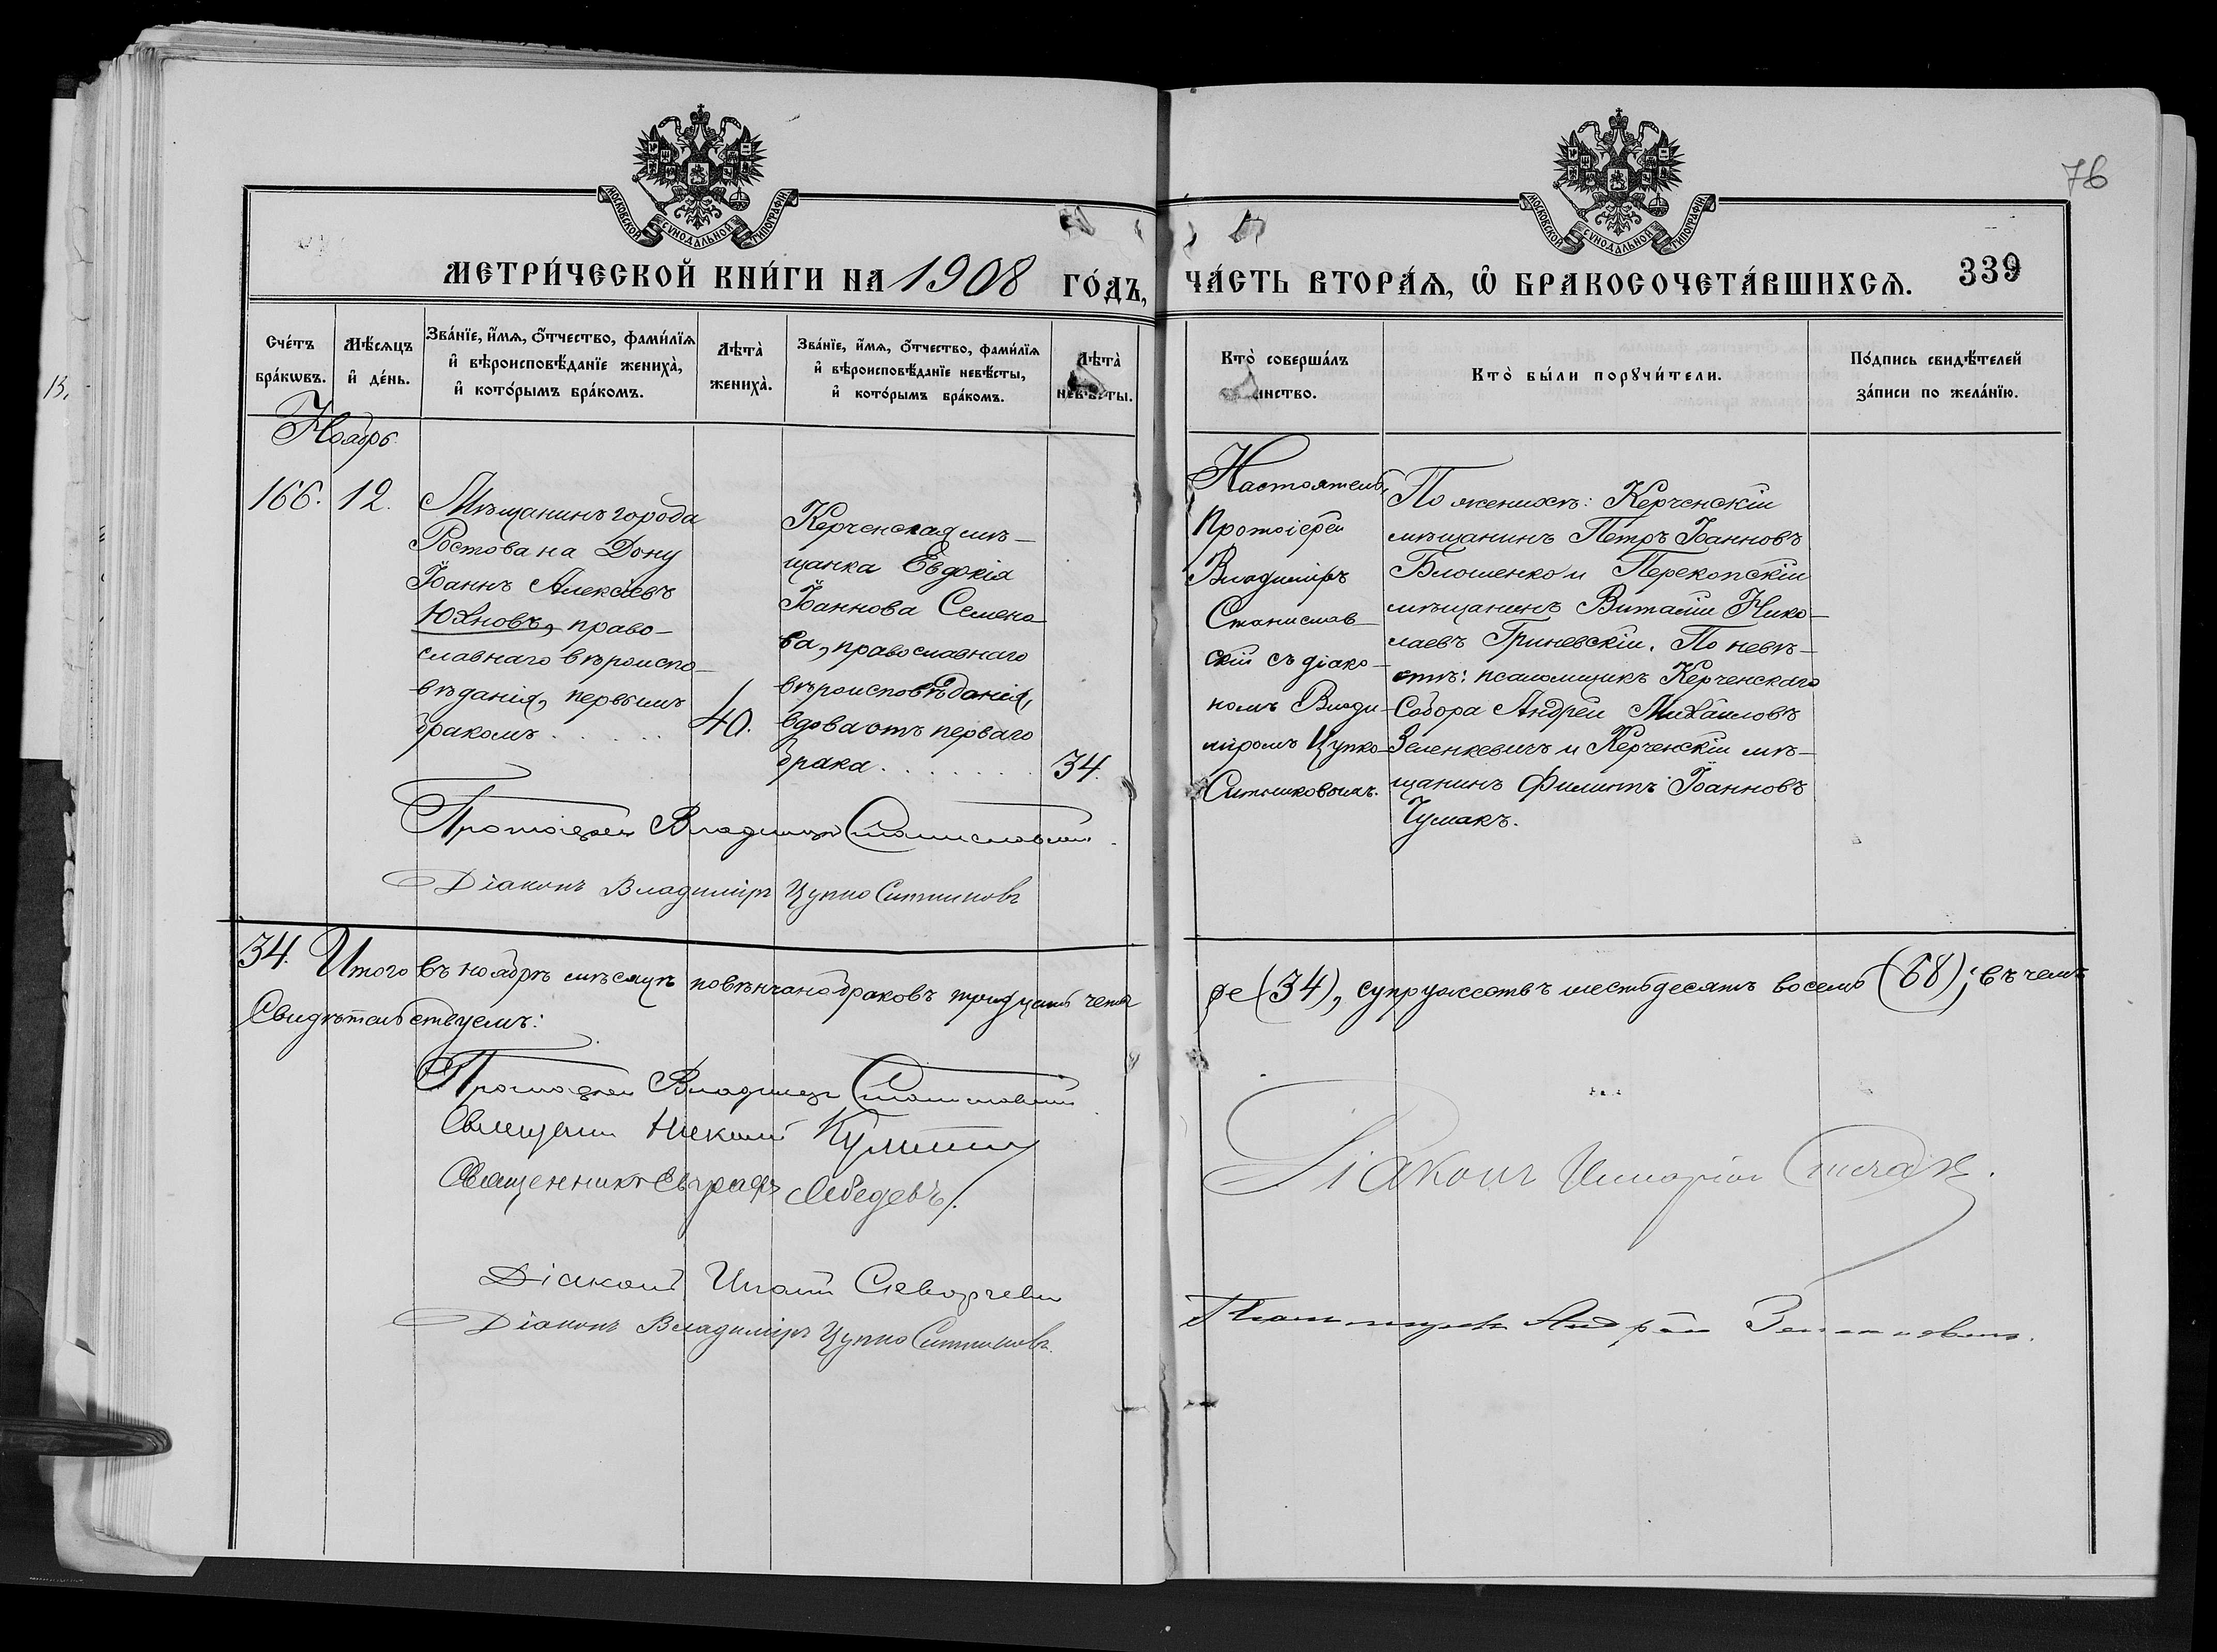 76
МОСКОВСКОЙ СѴНОДАЛЬНОЙ ТИПОГРАФІИ
МОСКОВСКОЙ СѴНОДАЛЬНОЙ ТИПОГРАФІИ
МЕТРИ́ЧЕСКОЙ КНИ́ГИ НА 1908 ГО́ДЪ,
ЧА́СТЬ ВТОРА́Ѧ, Ѽ БРАКОСОЧЕТА́ВШИХСѦ. 339
Сче́тъ бра́кѡвъ.
Мѣ́сѧцъ и҆ де́нь.
Зва́нїе, и҆́мѧ, ѻ҆́тчество, фами́лїѧ
и҆ вѣроисповѣ́данїе жениха̀,
и҆ кото́рымъ бра́комъ.
Лѣта̀ жениха̀.
Зва́нїе, и҆́мѧ, ѻ҆́тчество, фами́лїѧ
и҆ вѣроисповѣ́данїе невѣ́сты,
и҆ кото́рымъ бра́комъ.
Лѣта̀ невѣ́сты.
Кто̀ соверша́лъ
инство.
Кто̀ бы́ли порꙋчи́тели.
По́дпись свидѣ́телей
за́писи по жела́нїю.
13.
Ноябрь.
166. 12.
Мѣщанинъ города
Ростова на Дону
Іоаннъ Алексѣевъ
Юхновъ, право-
славнаго вѣроиспо-
вѣданія, первымъ
бракомъ . . . . . .
40.
Керченская мѣ-
щанка Евдокія
Іоаннова Семено-
ва, православнаго
вѣроисповѣданія,
вдова отъ перваго
брака . . . . . . .
34.
Настоятель,
Протоіерей
Владиміръ
Станислав-
скій съ діако-
номъ Влади-
міромъ Цупко-
Ситниковымъ.
По женихѣ: Керченскій
мѣщанинъ Петръ Іоанновъ
Блошенко и Перекопскій
мѣщанинъ Виталій Нико-
лаевъ Гриневскій. По невѣ-
стѣ: псаломщикъ Керченскаго
Собора Андрей Михаиловъ
Зеленкевичъ и Керченскій мѣ-
щанинъ Филиппъ Іоанновъ
Чумакъ.
Протоіерей Владиміръ Станиславскій.
Діаконъ Владиміръ Цупко Ситниковъ
34. Итого въ ноябрѣ мѣсяцѣ повѣнчано браковъ тридцать четы
ре (34), супружествъ шестьдесятъ восемь (68); въ чемъ
Свидѣтельствуемъ:
Протоіерей Владиміръ Станиславскій
Священникъ
Священникъ Евграфъ Лебедевъ.
Діаконъ
Діаконъ Владиміръ Цупко Ситниковъ.
Діаконъ
Псаломщикъ Андрей Зеленкевичъ.